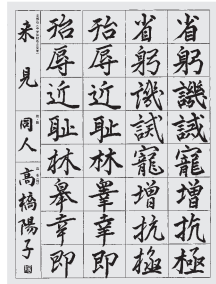 省躬譏誡寵增抗極
省躬譏誡寵增抗極
殆辱近耻林皐幸即
殆辱近耻林皐幸即
来見 同人 高橋陽子